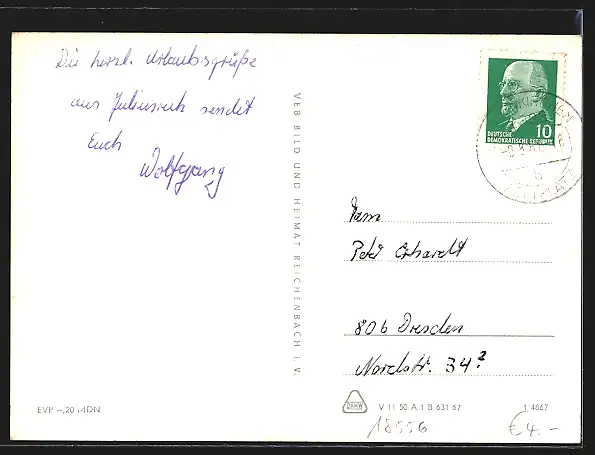 Die herzl. Urlaubsgrüße
aus Juliusruh sendet
Euch
Wolfgang
VEB BILD UND HEIMAT REICHENBACH i. V.
DEUTSCHE
DEMOKRATISCHE REPUBLIK
10
Fam
Peter
806 Dresden
Nordstr. 34
EVP -,20 MDN
V 11 50 A 1 B 631 67
1 4867
18556
€ 4.-